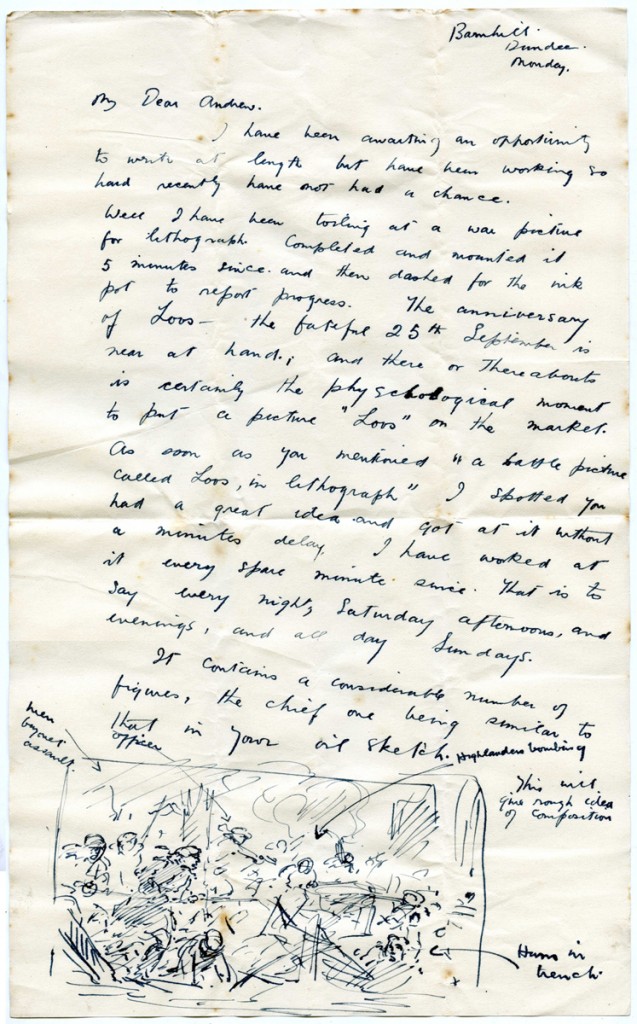 Barnhill.
Dundee.
Monday.
My Dear Andrew.
I have been awaiting an opportunity
to write at length but have been working so
hard recently have not had a chance.
Well I have been toiling at a war picture
for lithograph. Completed and mounted it
5 minutes since and then dashed for the ink
pot to report progress. The anniversary
of Loos – the fateful 25th September is
near at hand; and there or thereabouts
is certainly the physchological moment
to put a picture "Loos" on the market.
As soon as you mentioned "a battle picture
called Loos, in lithograph" I spotted you
had a great idea and got at it without
a minutes delay. I have worked at
it every spare minute since. That is to
say every night, Saturday afternoons, and
evenings, and all day Sundays.
It contains a considerable number of
figures, the chief one being similar to
that in your oil sketch.
men
bayonet
assault.
officer
Highlanders bombing
This will
give rough idea
of composition
Huns in
trench.